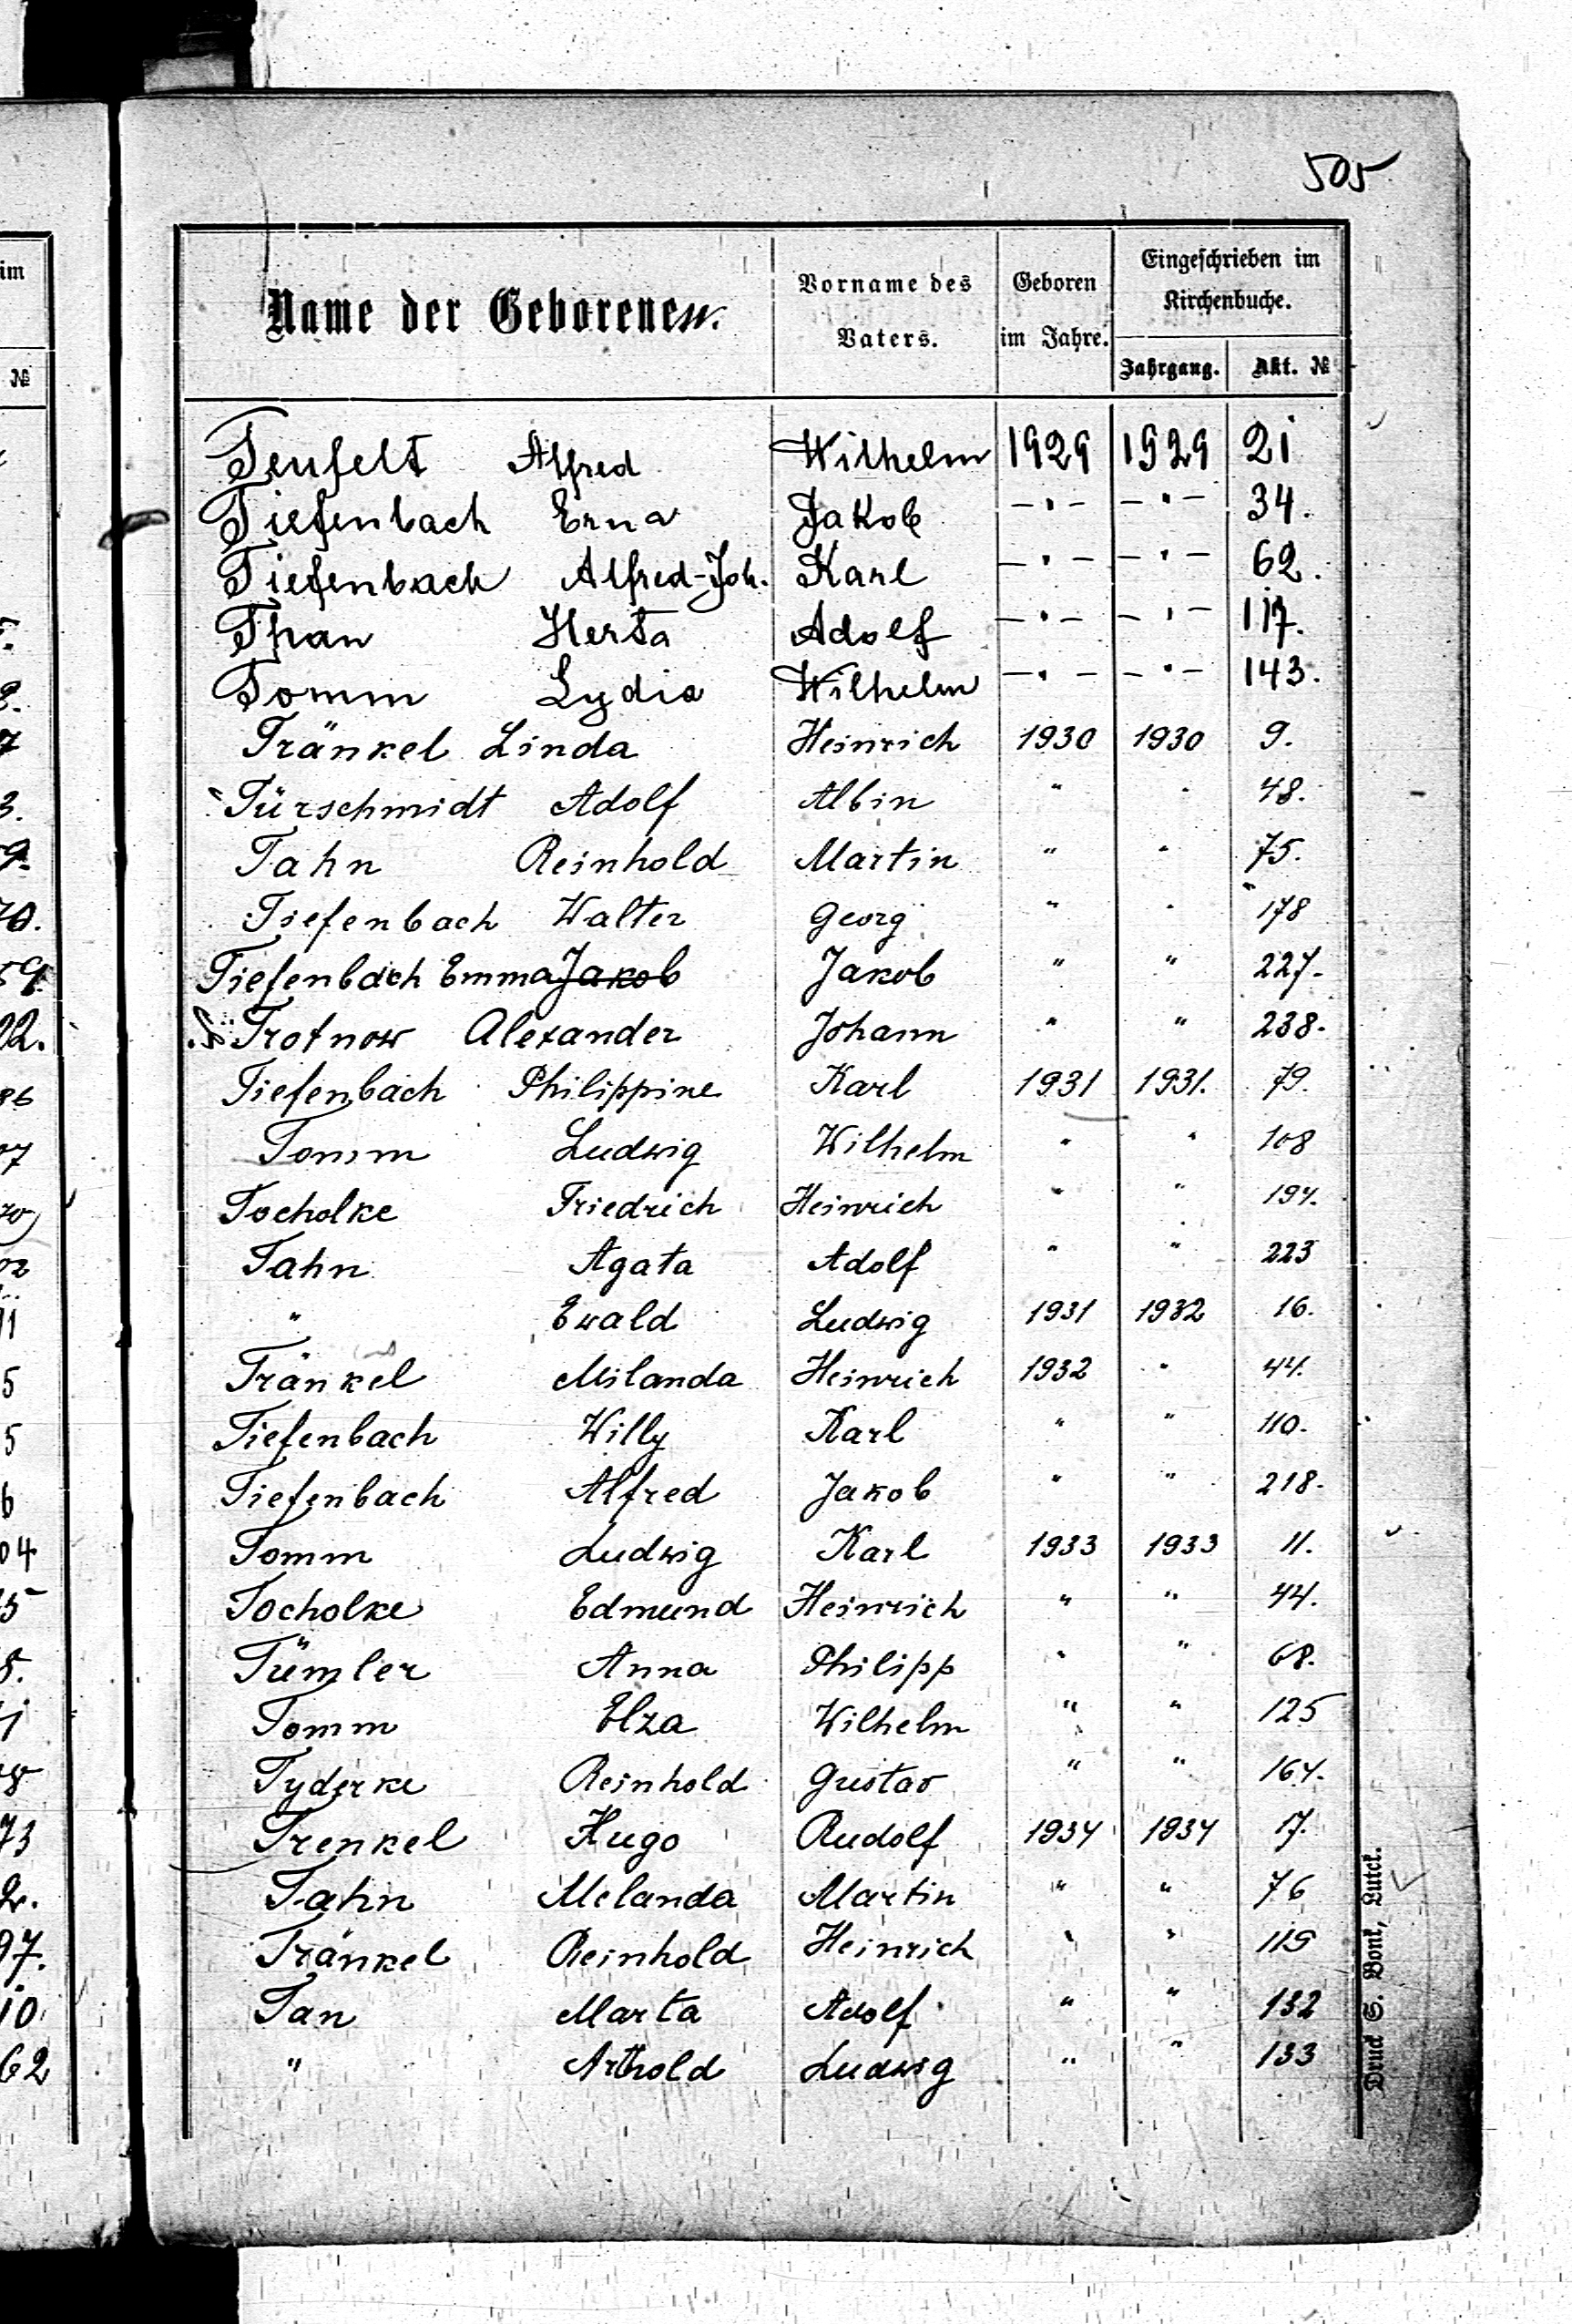 505
im
Name der Geborenen.
Vorname des Vaters.
Geboren im Jahre.
Eingeschrieben im Kirchenbuche.
№
Jahrgang. Akt. №
Teufelt Alfred Wilhelm 1929 1929 21
Tiefenbach Erna Jakob -"- -"- 34.
Tiefenbach Alfred-Joh. Karl -"- -"- 62.
Than Herta Adolf -"- -"- 117.
Tomm Lydia Wilhelm -"- -"- 143.
Tränkel Linda Heinrich 1930 1930 9.
Türschmidt Adolf Albin " " 48.
Tahn Reinhold Martin " " 75.
Tiefenbach Walter Georg " " 178
Tiefenbach Emma Jakob Jakob " " 227.
Trotnow Alexander Johann " " 238.
Tiefenbach Philippine Karl 1931 1931. 79.
Tomm Ludwig Wilhelm " " 108
Tocholke Friedrich Heinrich " " 194.
Tahn Agata Adolf " " 223
" Ewald Ludwig 1931 1932 16.
Tränkel Milanda Heinrich 1932 " 44.
Tiefenbach Willy Karl " " 110.
Tiefenbach Alfred Jakob " " 218.
Tomm Ludwig Karl 1933 1933 11.
Tocholke Edmund Heinrich " " 44.
Tümler Anna Philipp " " 68.
Tomm Elza Wilhelm " " 125
Tyderke Reinhold Gustav " " 164.
Trenkel Hugo Rudolf 1934 1934 17.
Tahn Melanda Martin " " 76
Tränkel Reinhold Heinrich " " 119
Tan Marta Adolf " " 132
" Arthold Ludwig " " 133
Druck S. Bonk, Lutck.